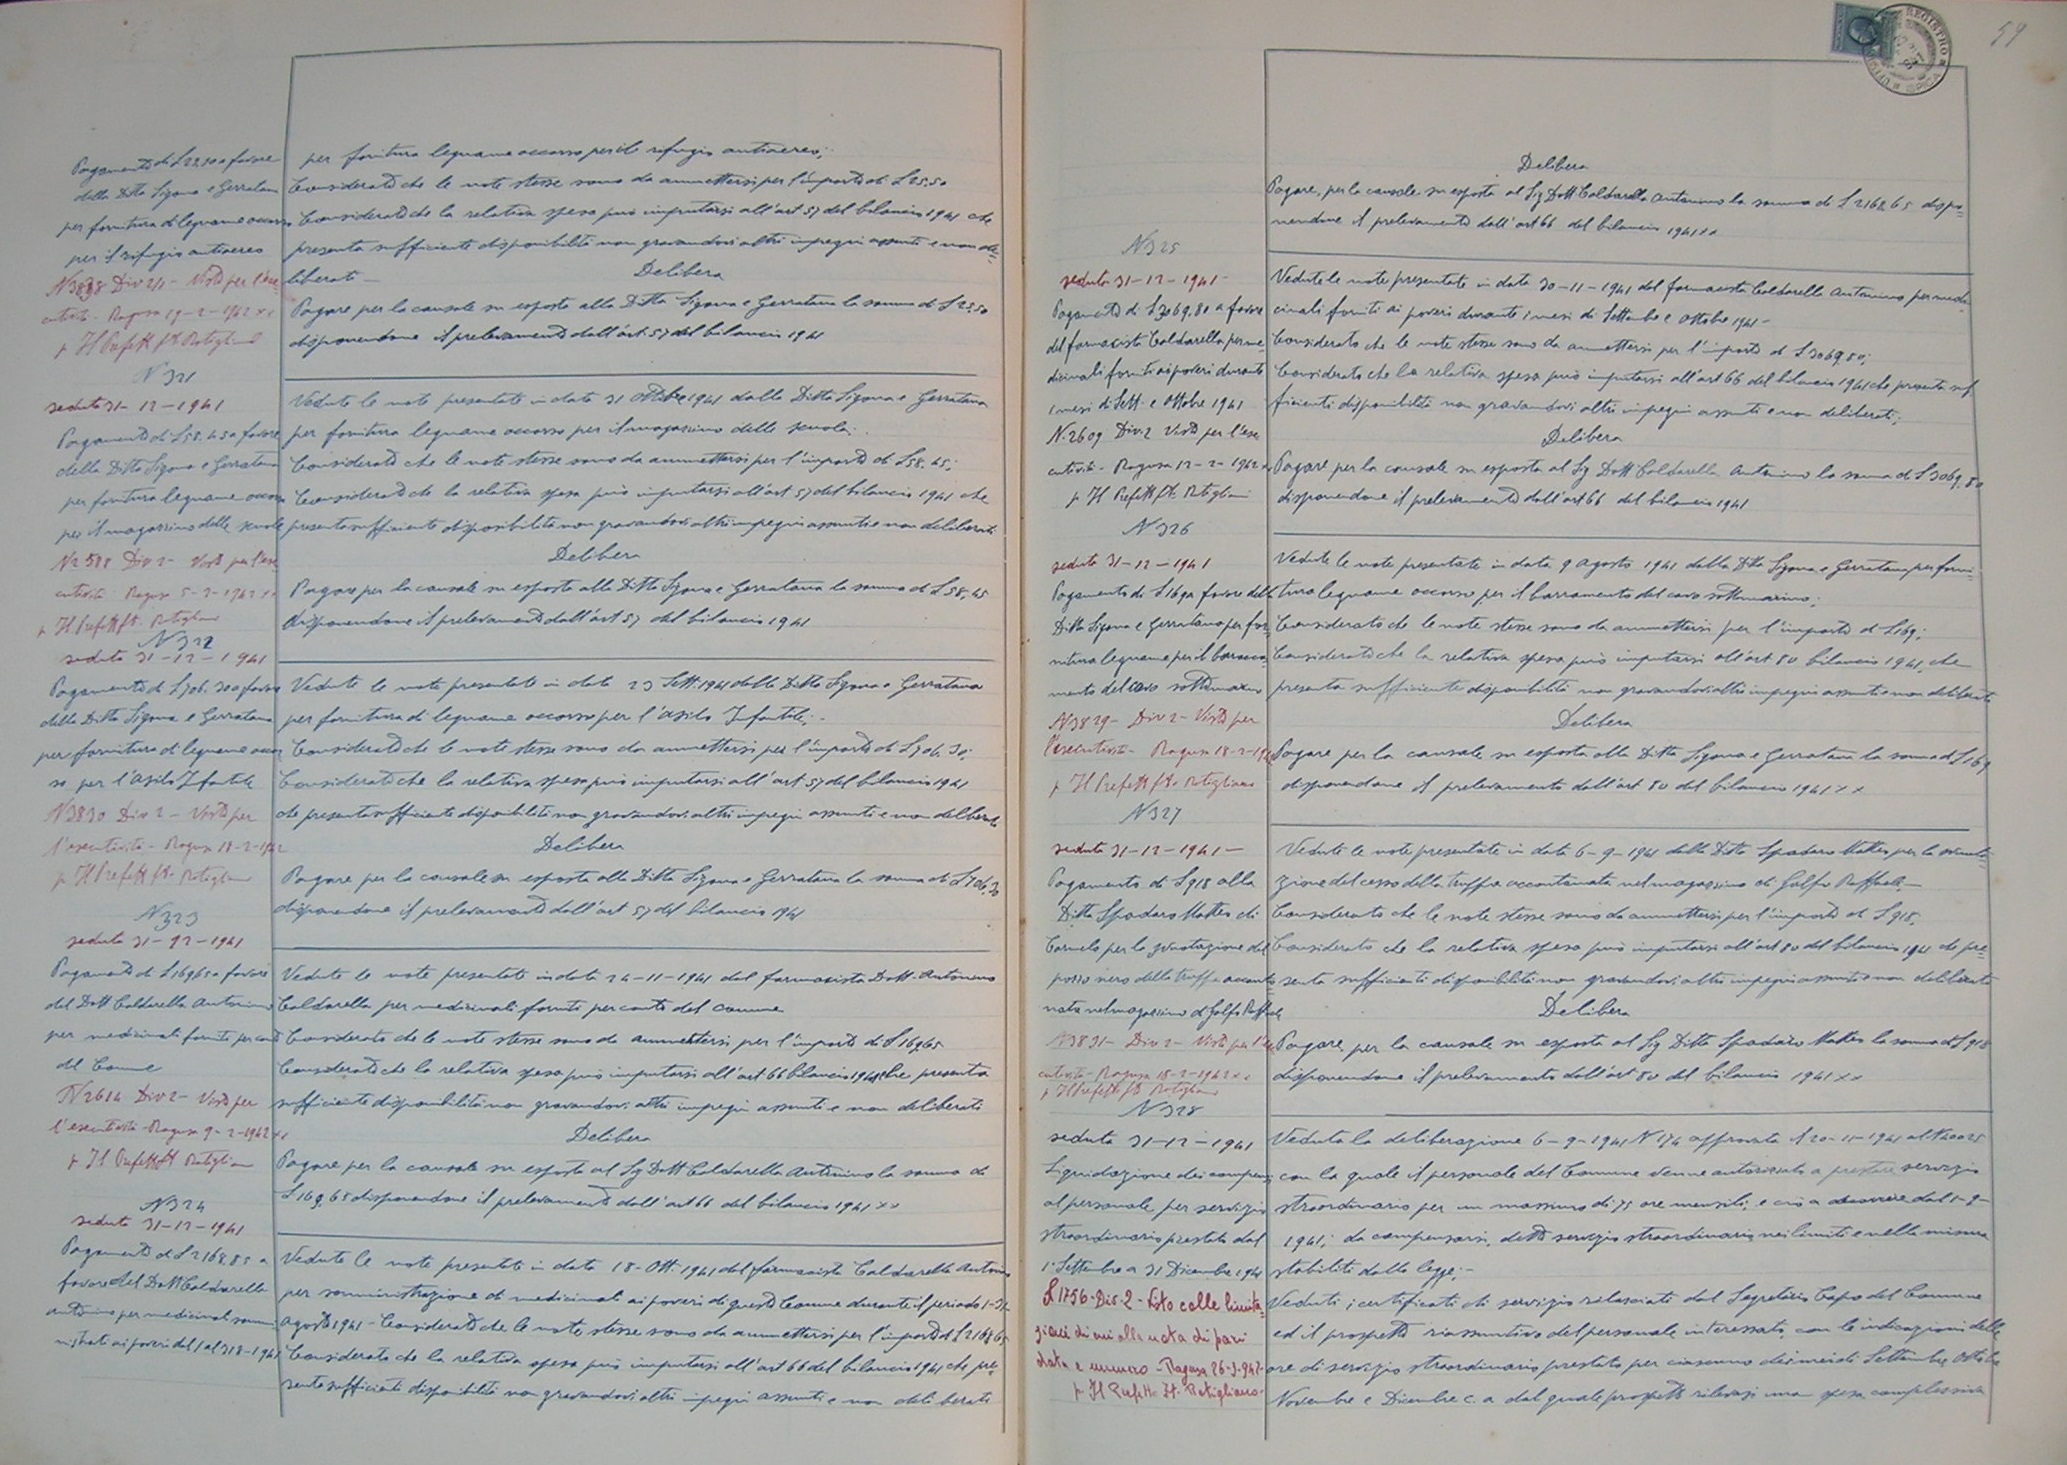 Pagamento di £ 25.50 a favore
della Ditta Sigona e Gerratana
per fornitura di legname occorso
per il rifugio antiaereo
N 3838 Div 2/1 - Visto per l'ese-
cutività - Ragusa 19-2-1942 xx
p Il Prefetto ft Rotigliano
N 321
seduta 31-12-1941
Pagamento di £ 58.45 a favore
della Ditta Sigona e Gerratana
per fornitura legname occorso
per il magazzino delle scuole
N 2588 Div 2 - Visto per l'ese-
cutività Ragusa 5-2-1942 xx
p Il Prefetto ft. Rotigliano
N 322
seduta 31-12-1941
Pagamento di £ 706.30 a favore
della Ditta Sigona e Gerratana
per fornitura di legname occor
so per l'Asilo Infantile
N 3830 Div 2 - Visto per
l'esecutività - Ragusa 18-2-1942
p Il Prefetto ft. Rotigliano
N 323
seduta 31-12-1941
Pagamento di £ 169.65 a favore
del Dott Caldarella Antonino
per medicinali forniti per conto
del Comune
N 2614 Div 2 - Visto per
l'esecutività - Ragusa 9-2-1942 xx
p Il Prefetto ft Rotigliano
N 324
seduta 31-12-1941
Pagamento di £ 2168.85 a
favore del Dott Caldarella
Antonino per medicinali sommi
nistrati ai poveri dal 1 al 31 8-1941
per fornitura legname occorso per il rifugio antiaereo;
Considerato che le note stesse sono da ammettersi per l'importo di £ 25.50
Considerato che la relativa spesa può imputarsi all'art 57 del bilancio 1941 che
presenta sufficiente disponibilità non gravandovi altri impegni assunti e non de-
liberati -
Delibera
Pagare per la causale su esposta alla Ditta Sigona e Gerratana la somma di £ 25.50
disponendone il prelevamento dall'art. 57 del bilancio 1941
Vedute le note presentate in data 31 ottobre 1941 dalla Ditta Sigona e Gerratana
per fornitura legname occorso per il magazzino delle scuole;
Considerato che le note stesse sono da ammettersi per l'importo di £ 58.45;
Considerato che la relativa spesa può imputarsi all'art 57 del bilancio 1941 che
presenta sufficiente disponibilità non gravandovi altri impegni assunti e non deliberati
Delibera
Pagare per la causale su esposta alla Ditta Sigona e Gerratana la somma di £ 58,45
disponendone il prelevamento dall'art 57 del bilancio 1941
Vedute le note presentate in data 23 Sett. 1941 dalla Ditta Sigona e Gerratana
per fornitura di legname occorso per l'Asilo Infantile;-
Considerato che le note stesse sono da ammettersi per l'importo di £ 706.30;
Considerato che la relativa spesa può imputarsi all'art 57 del bilancio 1941
che presenta sufficiente disponibilità non gravandovi altri impegni assunti e non deliberati
Delibera
Pagare per la causale su esposta alla Ditta Sigona e Gerratana la somma di £ 706.30
disponendone il prelevamento dall'art 57 del bilancio 1941
Vedute le note presentate in data 24-11-1941 dal farmacista Dott. Antonino
Caldarella per medicinali forniti per conto del comune
Considerato che le note stesse sono da ammettersi per l'importo di £ 169.65
Considerato che la relativa spesa può imputarsi all'art 66 bilancio 1941 che presenta
sufficiente disponibilità non gravandovi altri impegni assunti e non deliberati
Delibera
Pagare per la causale su esposta al Sig Dott Caldarella Antonino la somma di
£ 169,65 disponendone il prelevamento dall'art 66 del bilancio 1941 xx
Vedute le note presentate in data 18-Ott. 1941 del farmacista Caldarella Antonino
per somministrazione di medicinali ai poveri di questo Comune durante il periodo 1-31
agosto 1941 - Considerato che le note stesse sono da ammettersi per l'importo di £ 2168.65
Considerato che la relativa spesa può imputarsi all'art 66 del bilancio 1941 che pre-
senta sufficienti disponibilità non gravandovi altri impegni assunti e non deliberati
59
REGISTRO
N 325
seduta 31-12-1941 -
Pagamento di £ 3069,80 a favore
del farmacista Caldarella per me-
dicinali forniti ai poveri durante
i mesi di Sett. e Ottobre 1941
N. 2609 Div. 2 Visto per l'ese
cutività - Ragusa 12-2-1942 xx
p Il Prefetto ft. Rotigliano
N 326
seduta 31-12-1941
Pagamento di £ 169 a favore della
Ditta Sigona e Gerratana per for-
nitura legname per il barraca-
mento del cavo sottomarino
N 3829 - Div 2 - Visto per
l'esecutività - Ragusa 18-2-1942
p Il Prefetto ft. Rotigliano
N 327
seduta 31-12-1941 -
Pagamento di £ 918 alla
Ditta Spadaro Matteo di
Carmelo per la vuotazione del
pozzo nero della truppa accanto-
nata nel magazzino di Golfo Raffaele
N 3831 - Div 2 - Visto per l'ese
cutività - Ragusa 18-2-1942 xx
p Il Prefetto ft Rotigliano
N 328
seduta 31-12-1941
Liquidazione dei compensi
al personale per servizio
straordinario prestato dal
1° Settembre a 31 Dicembre 1941
£ 1756 - Div. 2 - Visto colle limita-
zioni di cui alla nota di pari
data e numero - Ragusa 26-3-942-
p Il Prefetto ft. Rotigliano -
Delibera
Pagare, per la causale su esposta al Sig Dott Caldarella Antonino la somma di £ 2168.65 dispo-
nendone il prelevamento dall'art 66 del bilancio 1941 xx
Vedute le note presentate in data 30-11-1941 dal farmacista Caldarella Antonino per medi-
cinali forniti ai poveri durante i mesi di Settembre e ottobre 1941 -
Considerato che le note stesse sono da ammettersi per l'importo di £ 3069.80;
Considerato che la relativa spesa può imputarsi all'art 66 del bilancio 1941 che presenta suf
ficienti disponibilità non gravandovi altri impegni assunti e non deliberati;
Delibera
Pagare per la causale su esposta al Sig Dott Caldarella Antonino la somma di £ 3069.80
disponendone il prelevamento dall'art 66 del bilancio 1941
Vedute le note presentate in data 9 agosto 1941 dalla Ditta Sigona e Gerratana per forni-
tura legname occorso per il barramento del cavo sottomarino;
Considerato che le note stesse sono da ammettersi per l'importo di £ 169;
Considerato che la relativa spesa può imputarsi all'art 80 bilancio 1941 che
presenta sufficiente disponibilità non gravandovi altri impegni assunti e non deliberati
Delibera
Pagare per la causale su esposta alla Ditta Sigona e Gerratana la somma di £ 169
disponendone il prelevamento dall'art 80 del bilancio 1941 xx
Vedute le note presentate in data 6-9-1941 dalla Ditta Spadaro Matteo per la vuota-
zione del cesso della truppa accantonata nel magazzino di Golfo Raffaele -
Considerato che le note stesse sono da ammettersi per l'importo di £ 918.
Considerato che la relativa spesa può imputarsi all'art 80 del bilancio 1941 che pre-
senta sufficiente disponibilità non gravandovi altri impegni assunti e non deliberati
Delibera
Pagare per la causale su esposta al Sig Ditta Spadaro Matteo la somma di £ 918
disponendone il prelevamento dall'art 80 del bilancio 1941 xx
Veduta la deliberazione 6-9-1941 N 174 approvata il 20-11-1941 al N 20025
con la quale il personale del Comune venne autorizzato a prestare servizio
straordinario per un massimo di 75 ore mensili, e ciò a decorrere dal 1-9-
1941; da compensarsi, detto servizio straordinario nei limiti e nella misura
stabiliti dalla legge;-
Veduti i certificati di servizio rilasciati dal Segretario Capo del Comune
ed il prospetto riassuntivo del personale interessato, con le indicazioni delle
ore di servizio straordinario prestato per ciascuno dei mesi di Settembre, Ottobre
Novembre e Dicembre c. a dal quale prospetto rilevasi una spesa complessiva